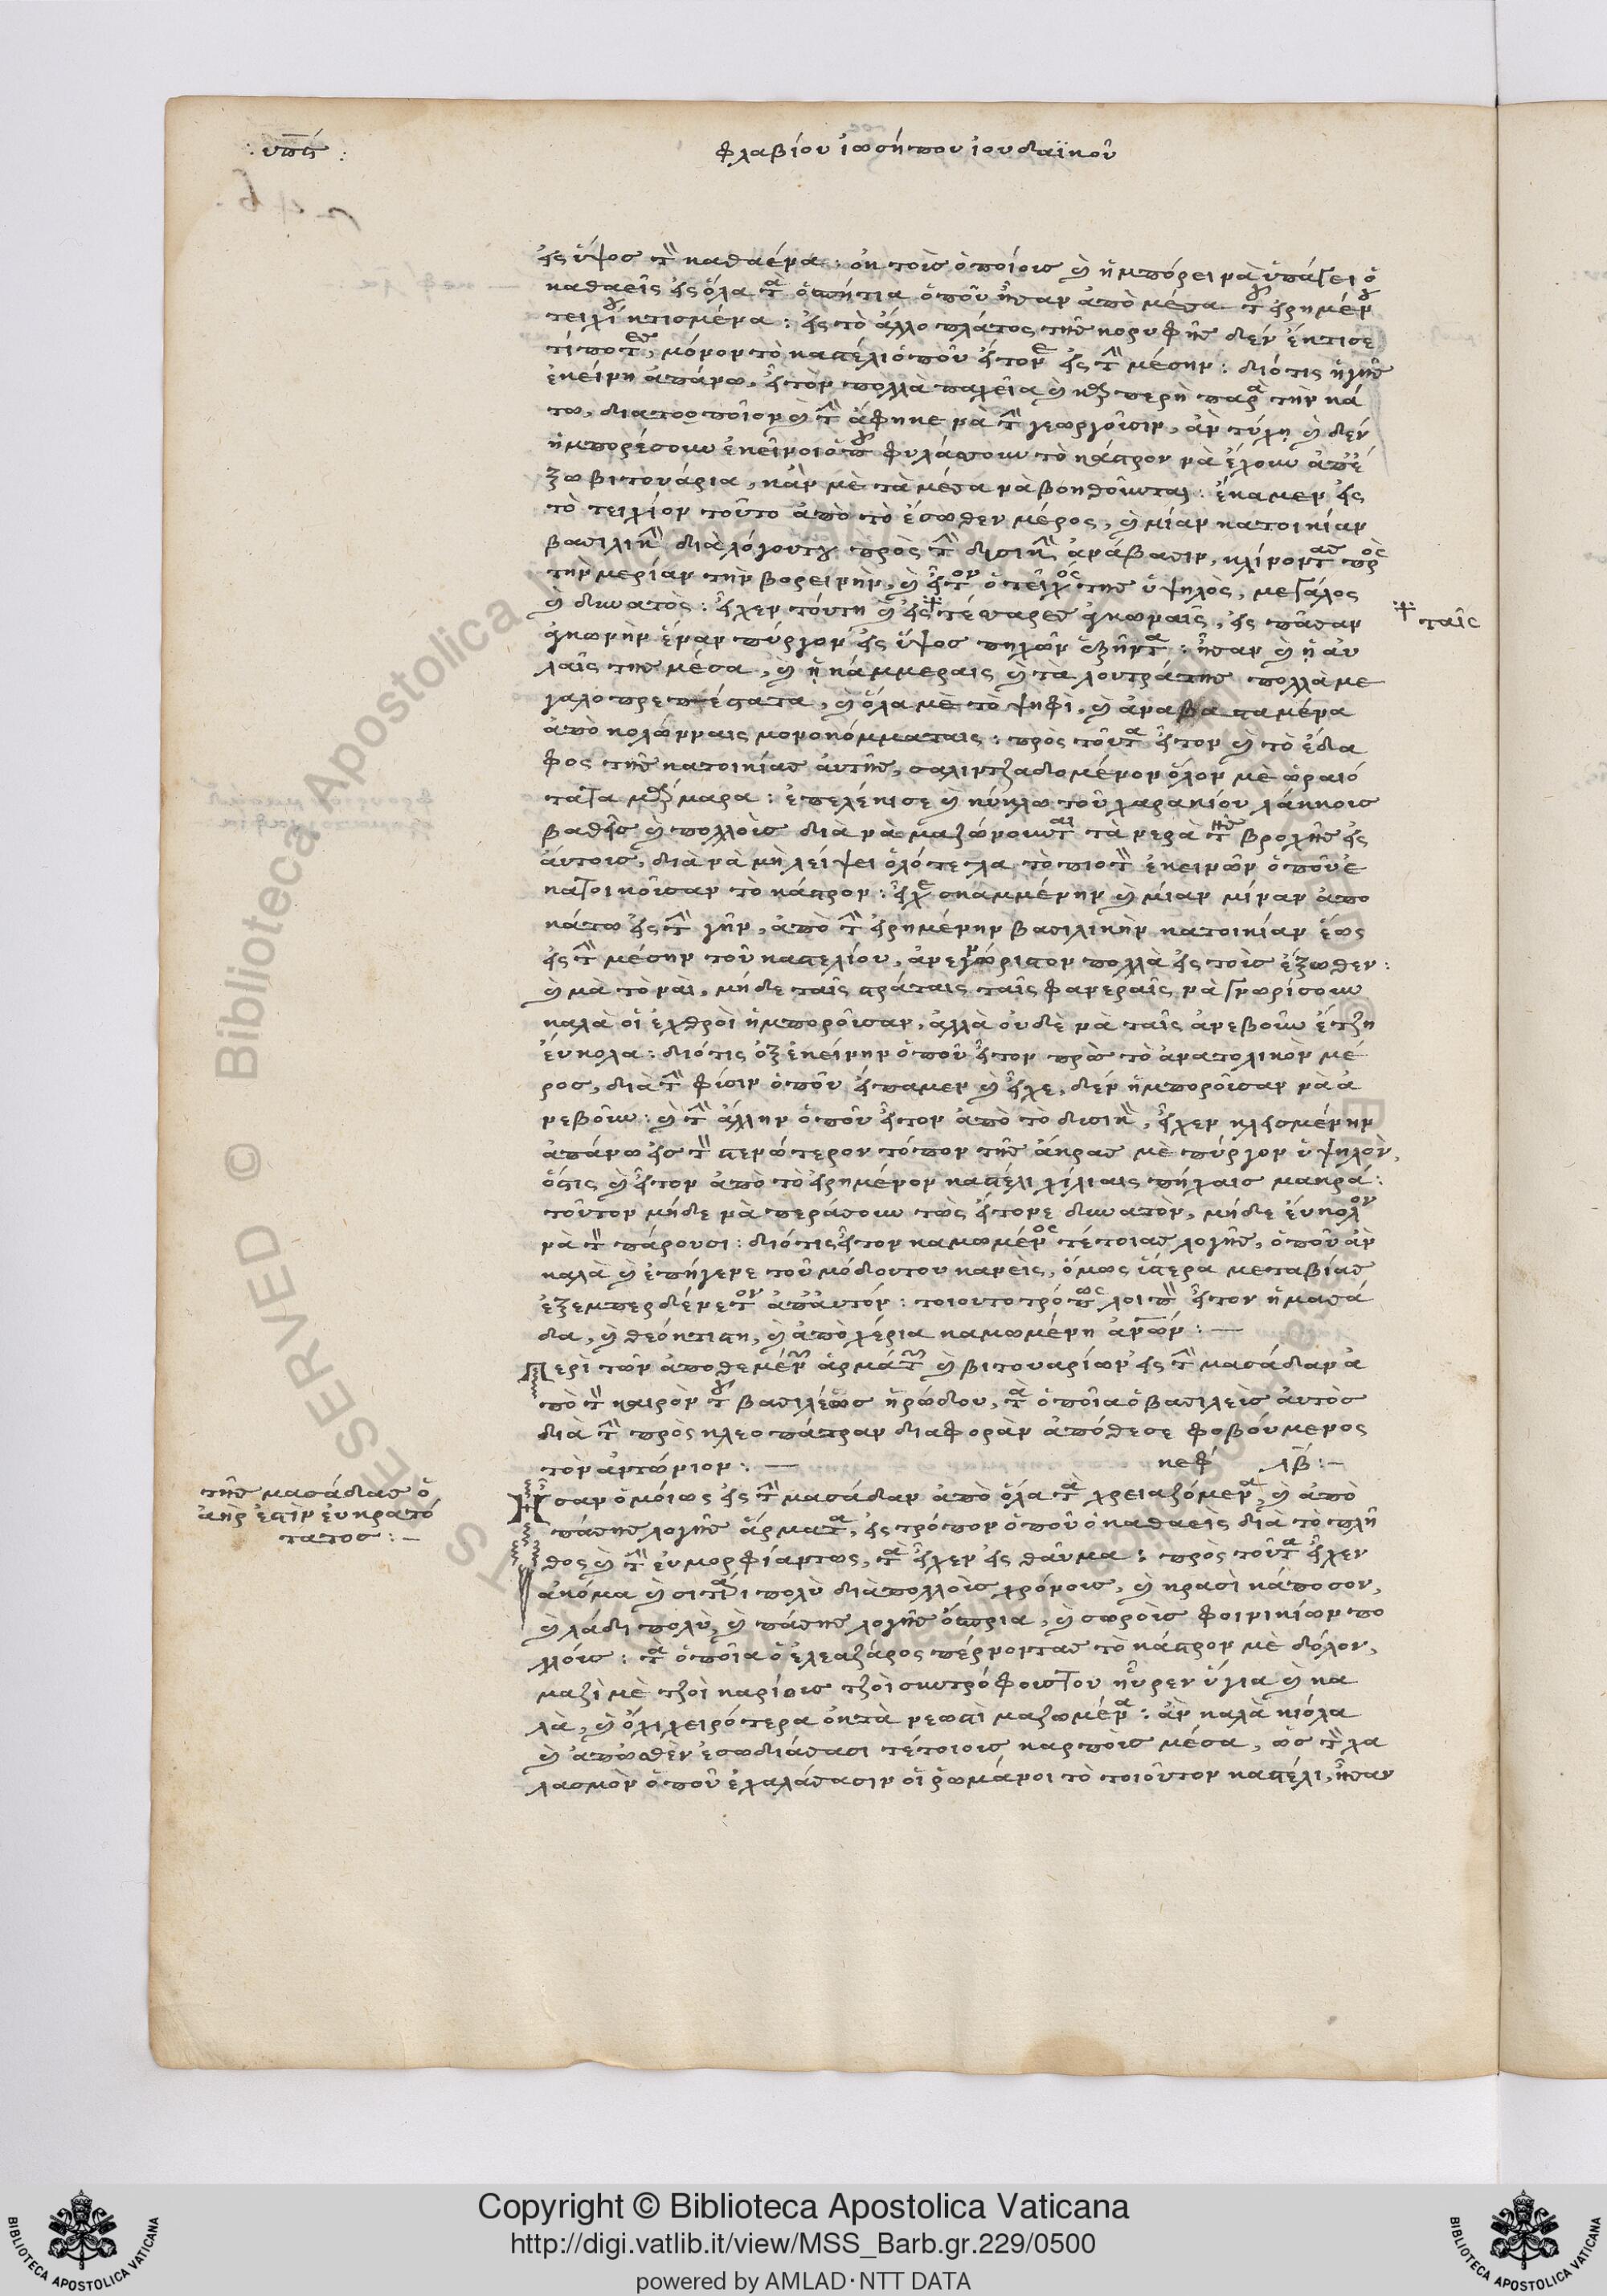 : υπϛ :
φλαβίου ἰωσήπου ἰουδαϊκοῦ
εἰς ὕψος τὸν καθαένα: ἐκ τοὶς ὁποίοις καὶ ἠμπόρει νὰ ὑπάγει ὁ
καθαεῖς εἰς ὅλα τὰ ὁσπήτια ὁποῦ ἦσαν ἀπὸ μέσα τοῦ εἰρημένου
τειχίου κτισμένα: εἰς τὸ ἄλλο πλάτος τῆς κορυφῆς δὲν ἔκτισε
τίποτες, μόνον τὸ καστέλι ὁποῦ ἦτονε εἰς τὴν μέσην: διότις ἡ γῆς
ἐκείνη ἀπάνω, ἦτον πολλὰ παχεῖα καὶ περὴ παρὰ τὴν κά
τω, διατοοποῖον καὶ τὴν ἄφηκε νὰ τὴν γεωργοῦσιν, ἂν τύχη καὶ δὲν
ἠμπορέσουν ἐκεῖνοι ὁποῦ φυλάττουν τὸ κάστρον νὰ ἔχουν ἀπέ
ξω βιτουάρια, κἂν μὲ τὰ μέσα νὰ βοηθοῦνται: ἔκαμεν εἰς
τὸ τειχίον τοῦτο ἀπὸ τὸ ἔσωθεν μέρος, καὶ μίαν κατοικίαν
βασιλικὴν διαλόγουτου πρὸς τὴν δισικὴν ἀνάβασιν, κλίνοντας πρὸς
τὴν μερίαν τὴν βορεινὴν, καὶ ἦτον ὁ τεῖχος της ὑψηλὸς, μεγάλος
καὶ δυνατὸς: εἶχεν τούτη καὶ εἰς τέσσαρες ἀγκωναῖς, εἰς πᾶσαν
ἀγκωνὴν ἕναν πύργον εἰς ὕψος πηχῶν ἑξῆντα: ἦσαν καὶ ἡ αὐ
λαῖς της μέσα, καὶ ἡ κάμμεραις καὶ τὰ λουτράτης πολλὰ με
γαλοπρεπέστατα, καὶ ὅλα μὲ τὸ ψηφὶ, καὶ ἀναβασταμένα
ἀπὸ κολώνναις μονοκόμματαις: πρὸς τοῦτα ἦτον καὶ τὸ ἔδα
φος τῆς κατοικίας αὐτῆς, σαλιντζαδομένον ὅλον μὲ ὡραιό
τατα μάρμαρα: ἐπελέκισε καὶ κύκλω τοῦ χαρακίου λάκκους
βαθεῖς καὶ πολλοὶς διὰ νὰ μαζώνουνται τὰ νερὰ τῆς βροχῆς εἰς
αὐτοις, διὰ νὰ μὴ λείψει ὁλότελα τὸ πιοτὸν ἐκεινῶν ὁποῦ ἐ
κατοικοῦσαν τὸ κάστρον: εἶχε σκαμμένην καὶ μίαν μίναν ἀπο
κάτω εἰς τὴν γῆν, ἀπὸ τὴν εἰρημένην βασιλικὴν κατοικίαν ἕως
εἰς τὴν μέσην τοῦ καστελίου, ἀνεγνώριστον πολλὰ εἰς τοὶς ἔξωθεν:
καὶ μὰ τὸ ναὶ, μήδε ταῖς στράταις ταῖς φανεραῖς νὰ γνωρίσουν
καλὰ οἱ ἐχθροὶ ἠμποροῦσαν, ἀλλὰ οὐδὲ νὰ ταῖς ἀνεβοῦν ἔτζη
εὔκολα: διότις ἐξ ἐκείνην ὁποῦ ἦτον πρὸ τὸ ἀνατολικὸν μέ
ρος, διὰ τὴν φύσιν ὁποῦ εἴπαμεν καὶ εἶχε, δὲν ἠμποροῦσαν νὰ ἀ
νεβοῦν: καὶ τὴν ἄλλην ὁποῦ ἦτον ἀπὸ τὸ δισικὸν, εἶχεν κλεισμένην
ἀπάνω εἰς τὸν στενότερον τόπον τῆς ἄκρας μὲ πύργον ὑψηλὸν,
ὅστις καὶ ἦτον ἀπὸ τὸ εἰρημένον καστέλι χίλιαις πήχαις μακρά:
τοῦτον μήδε νὰ περάσουν τὸς ἦτονε δυνατὸν, μήδε εὔκολον
νὰ τὸν πάρουσι: διότις ἦτον καμωμένος τέτοιας λογῆς, ὁποῦ ἂν
καλὰ καὶ ἐπήγενε τοῦ μόδουτου κανεὶς, ὅμως ὕστερα μεταβίας
ἐξεμπερδένετον ἀπ᾽ αὐτόν: τοιουτοτρόπως λοιπὸν ἦτον ἡ μασά
δα, καὶ θεόκτιστη, καὶ ἀπὸ χέρια καμωμένη ἀνων: —
Περὶ τῶν ἀποθεμένων ἁρμάτων καὶ βιτουαρίων εἰς τὴν μασάδαν ἀ
πὸ τὸν καιρὸν τοῦ βασιλέως ἡρώδου, τὰ ὁποῖα ὁ βασιλεὶς αὐτὸς
διὰ τὴν πρὸς κλεοπάτραν διαφορὰν ἀπόθεσε φοβούμενος
τὸν ἀντώνιον: — κεφ λβ: —
Ἦσαν ὁμοίως εἰς τὴν μασάδαν ἀπὸ ὅλα τὰ χρειαζόμενα, καὶ ἀπὸ
πάσης λογῆς ἄρματα, εἰς τρόπον ὁποῦ ὁ καθαεὶς διὰ τὸ πλῆ
θος καὶ τὴν εὐμορφίαντως, τὰ εἶχεν εἰς θαῦμα: πρὸς τοῦτα εἶχεν
ἀκόμα καὶ σιτάρι πολὺ διὰ πολλοὶς χρόνοις, καὶ κρασὶ κάποσον,
καὶ λάδι πολὺ, καὶ πάσης λογῆς ὄσπρια, καὶ σωροὶς φοινικίων πο
λλόις: τὰ ὁποῖα ὁ ἐλεαζάρος πέρνοντας τὸ κάστρον μὲ δόλον,
μαζὶ μὲ τζοὶ καρίοις τζοὶ συντρόφουςτου ηὗρεν ὕγια καὶ κα
λὰ, καὶ ὄχι χειρότερα ἐκ τὰ νεωστὶ μαζωμένα: ἂν καλὰ κιόλα
καὶ ἀπῶθεν ἐσωδιάσασι τέτοιοις καρποὶς μέσα, ὡς τὸν χα
λασμὸν ὁποῦ ἐχαλάσασιν οἱ ῥωμάνοι τὸ τοιοῦτον καστέλι, ἦσαν
ταῖς
τῆς μασάδας ὁ
ἀὴρ ἐστὶν εὐκρατό
τατος: —
Copyright © Biblioteca Apostolica Vaticana
http://digi.vatlib.it/view/MSS_Barb.gr.229/0500
powered by AMLAD·NTT DATA